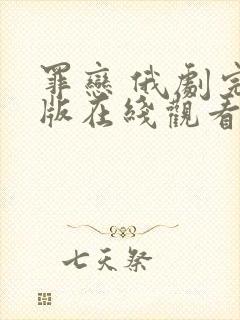 罪戀 俄劇完
版在綫觀看
七天祭